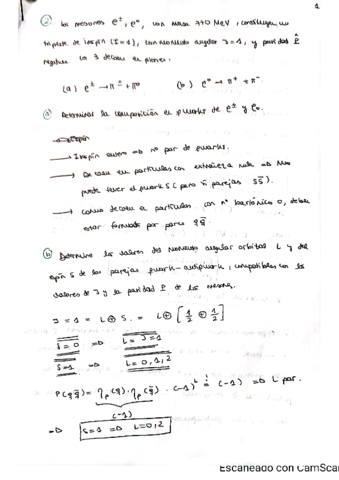 1
② Los mesones ρ±, ρ°, con masa 770 MeV, constituyen un
triplete de isospín (I=1), con momento angular J=1, y paridad P̂
negativa. Los 3 decaen en piones:
(a) ρ± → π± + π°    (b) ρ° → π⁺ + π⁻
ⓐ Determinar la composición en quarks de ρ± y ρ₀.
→ Isospín entero ⇒ nº par de quarks.
→ Decae en partículas con extrañeza nula ⇒ No
puede tener el quark S (pero sí parejas SS̄).
→ Como decae a partículas con nº bariónico 0, debe
estar formado por pares qq̄
ⓑ Determine los valores del momento angular orbital L y del
espín S de las parejas quark-antiquark, compatibles con los
valores de J y la paridad P de los mesones.
J = 1 = L⊕S. = L⊕[1/2 ⊕ 1/2]
S=0 ⇒ L=J=1
S=1 ⇒ L=0,1,2
P(qq̄) = ηp(q)·ηp(q̄)·(-1)ᴸ = (-1) ⇒ L par.
(-1)
⇒ S=1 ⇒ L=0,2
Escaneado con CamSca